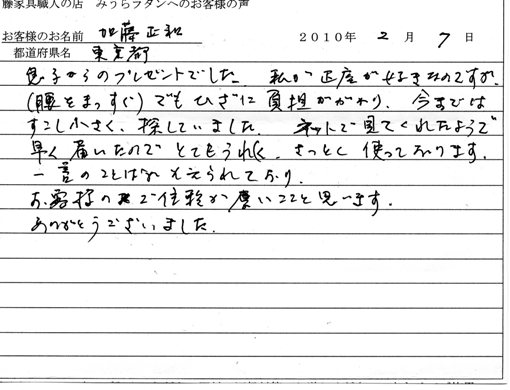 藤家具職人の店 みうらラタンへのお客様の声
お客様のお名前 加藤正和 2010年 2月 7日
都道府県名 東京都
息子からのプレゼントでした。 私が正座が好きなのですが、
(腰をまっすぐ)でもひざに負担がかかり、今までは
すこし小さく、探していました。 ネットで見てくれたようで
早く届いたので とてもうれしく、さっそく 使っております。
一言のことばもそえられており、
お客様の で住移が 廣いことと思います。
ありがとうございました。